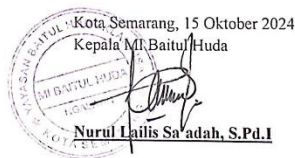 Kota Semarang, 15 Oktober 2024
Kepala MI Baitul Huda
YAYASAN BAITUL HUDA
MI BAITUL HUDA
KOTA SEM
Nurul Lailis Sa'adah, S.Pd.I